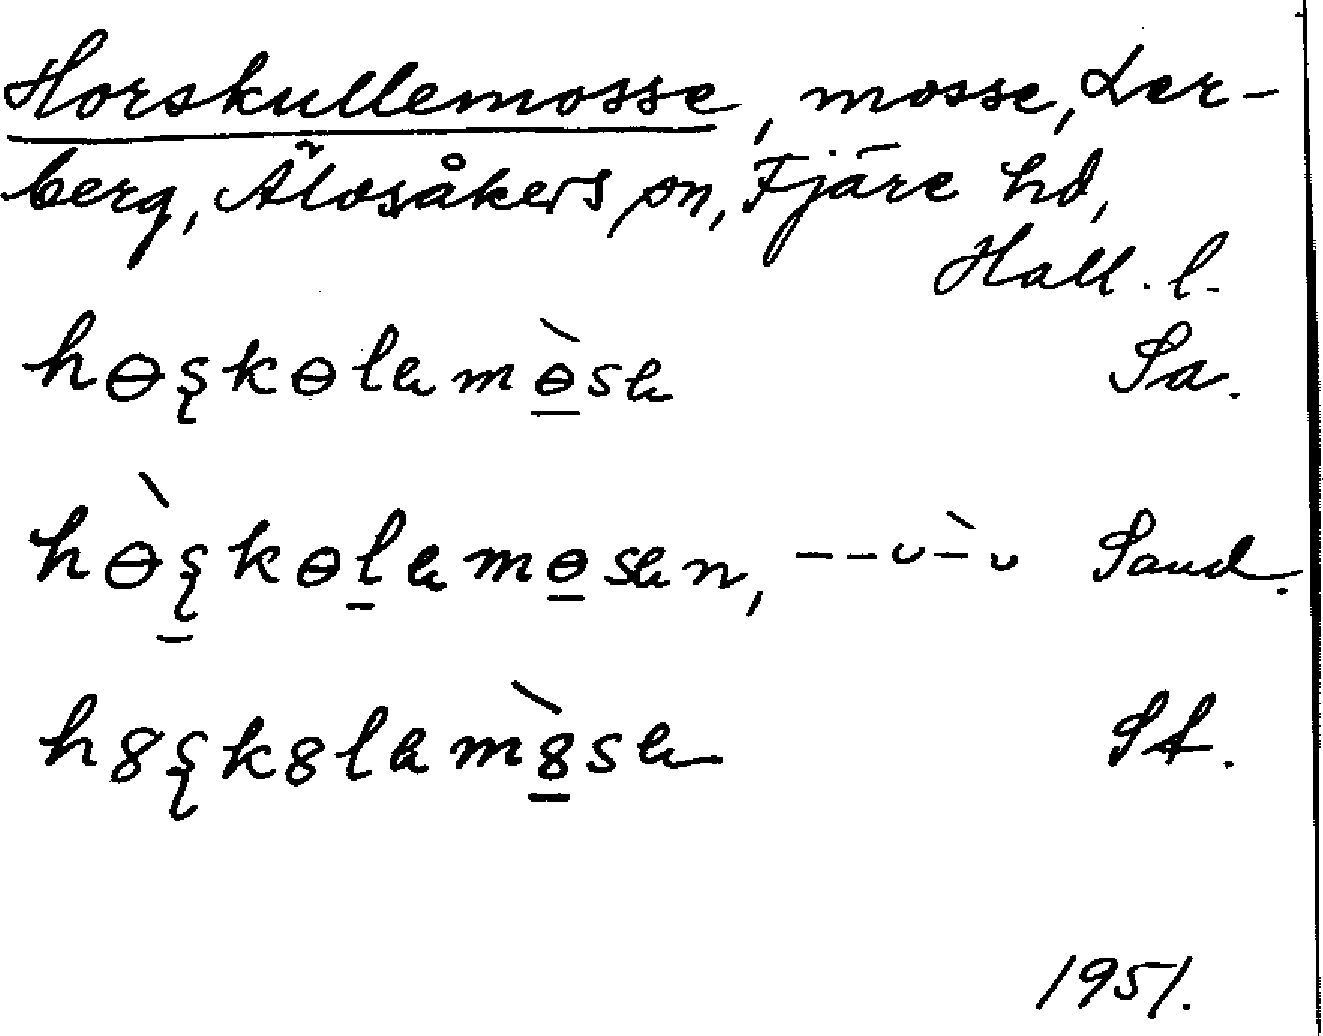 Horskullemosse, mosse, Ler-
berg, Älvsåkers sn, Fjäre hd,
Hall. l.
hɵʂkɵlamɵ̀sa Sa.
hɵ̀ʂkɵlamɵsan, – – ᴗ –̀ ᴗ Sand.
h8ʂk8lam8̀sa St.
1951.